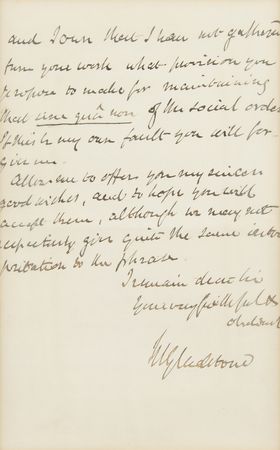 and I own that I have not gathered
from your work what provision you
propose to make for maintaining
that sine quâ non of the social order.
If this be my own fault you will for-
give me.
Allow me to offer you my sincere
good wishes, and to hope you will
accept them, although we may not
respectively give quite the same inter-
pretation to the phrase.
I remain dear Sir
Your very faithful &
obedient
W E Gladstone